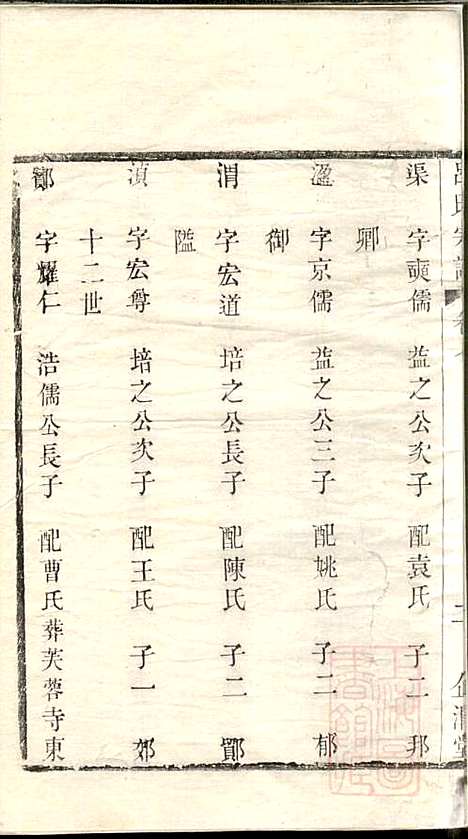 呂氏宗譜
二
渠　字奭儒　益之公次子　配袁氏　子二　邦
卿
濜　字京儒　益之公三子　配姚氏　子二　郁
御
渭　字宏道　培之公長子　配陳氏　子二　鄮
隘
滇　字宏尊　培之公次子　配王氏　子一　郊
十二世
鄮　字耀仁　浩儒公長子　配曹氏葬芙蓉寺東